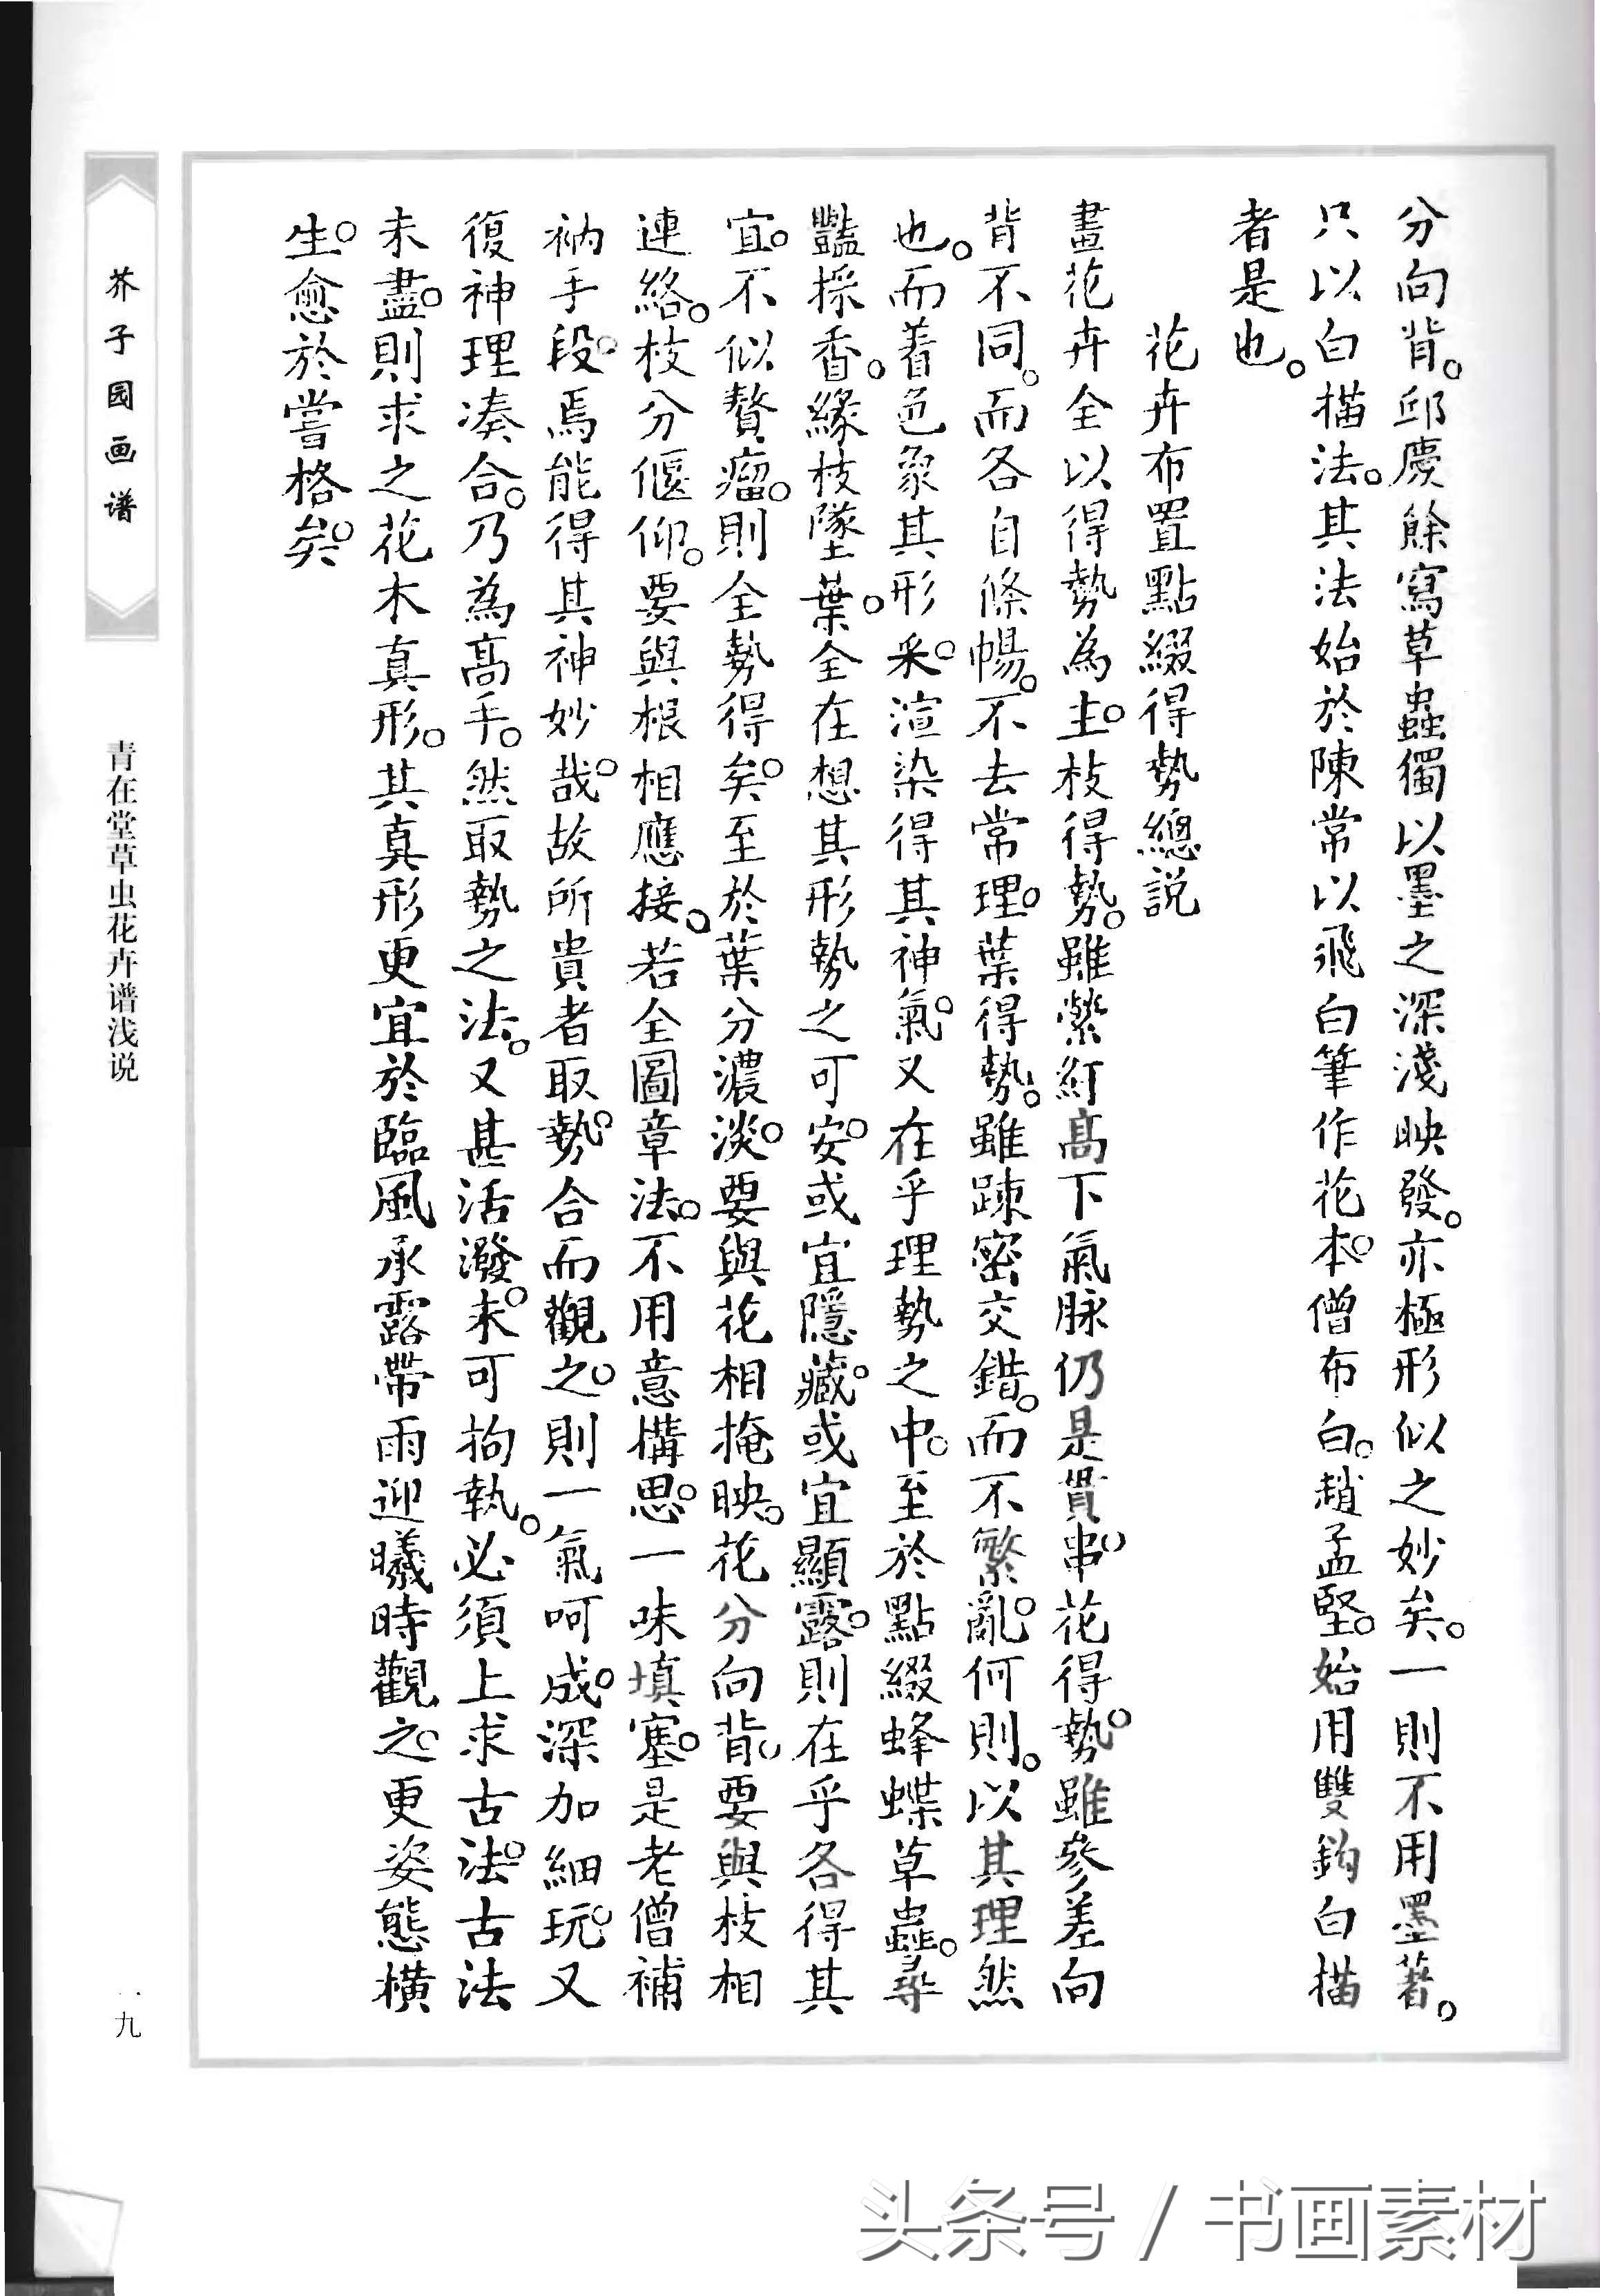 分向背。邱慶餘寫草蟲獨以墨之深淺映發。亦極形似之妙矣。一則不用墨著。
只以白描法。其法始於陳常以飛白筆作花本。僧布白。趙孟堅。始用雙鈎白描
者是也。
花卉布置點綴得勢總説
畫花卉全以得勢為主。枝得勢。雖縈紆高下氣脉仍是貫串。花得勢。雖參差向
背不同。而各自條暢。不去常理。葉得勢。雖踈密交錯。而不繁亂。何則。以其理然
也。而着色象其形采。渲染得其神氣。又在乎理勢之中。至於點綴蜂蝶草蟲。尋
豔採香。緣枝墜葉。全在想其形勢之可安。或宜隱藏。或宜顯露。則在乎各得其
宜。不似贅瘤。則全勢得矣。至於葉分濃淡。要與花相掩映。花分向背。要與枝相
連絡。枝分偃仰。要與根相應接。若全圖章法。不用意構思。一味填塞。是老僧補
衲手段。焉能得其神妙哉。故所貴者取勢。合而觀之。則一氣呵成。深加細玩。又
復神理凑合。乃為高手。然取勢之法。又甚活潑。未可拘執。必須上求古法。古法
未盡。則求之花木真形。其真形更宜於臨風承露帶雨迎曦時觀之。更姿態橫
生。愈於嘗格矣。
芥子园画谱
青在堂草虫花卉谱浅说
九
头条号 / 书画素材